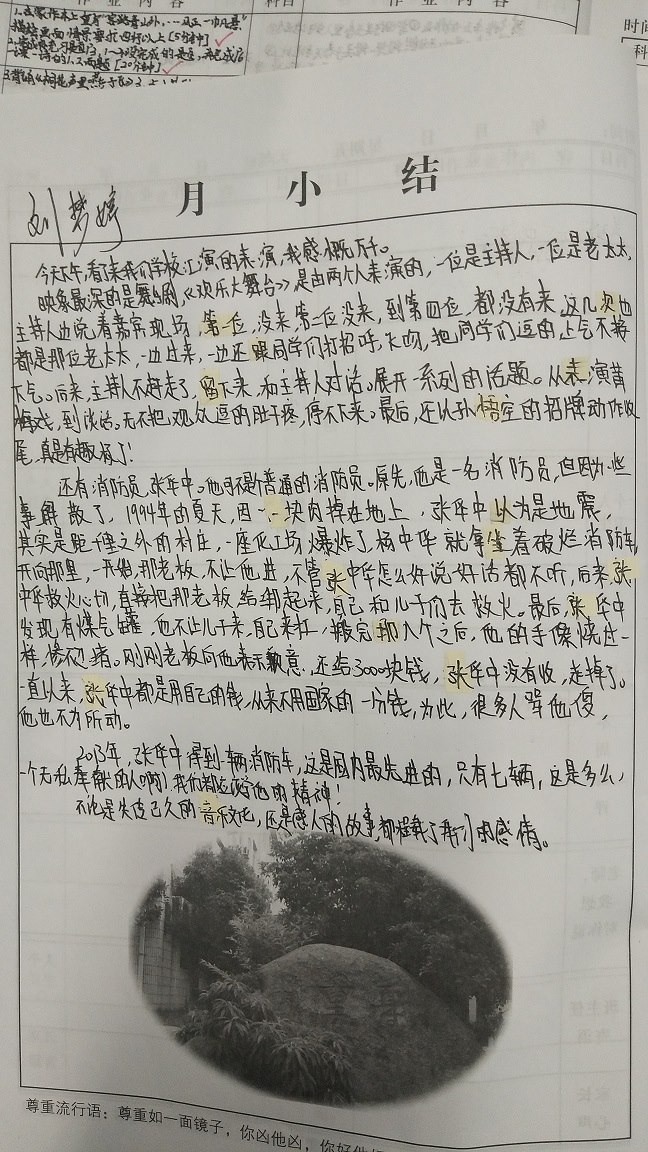 作 业 内 容
科目
描写画面情景要求四行以上[5分钟]
[20分钟]
时间
科
月 小 结
刘梦婷
今天下午,看了我们学校汇演的表演,我感慨万千。
映象最深的是舞台剧《欢乐大舞台》是由两个人表演的,一位是主持人,一位是老太太,
主持人边说着嘉宾现场,第一位,没来,第二位没来,到第四位,都没有来,这几次也
都是那位老太太,一边过来,一边还跟同学们打招呼,飞吻,把同学们逗的上气不接
下气。后来,主持人不赶走了,留下来,和主持人对话。展开一系列的话题。从表演黄
梅戏,到谈话。无不把观众逗的肚子疼,停不下来。最后,还以孙悟空的招牌动作收
尾,真是有趣极了!
还有消防员,张华中。他可不是个普通的消防员。原先,他是一名消防员,但因为一些
事解散了,1994年的夏天,因一块肉掉在地上,张华中以为是地震,
其实是距千里之外的村庄,一座化工场爆炸了,杨中华就拿坐着破烂消防车,
开向那里,一开始那老板,不让他进,不管张中华怎么好说好话都不听,后来,张
中华救火心切,直接把那老板给绑起来,自己和儿子们去救火。最后,张华中
发现有煤气罐,也不让儿子来,自己来扛,搬完那八个之后,他的手像烧过一
样,惨不忍睹。刚刚老板向他表示歉意,还给3000块钱,张华中没有收,走掉了。
一直以来,张华中都是用自己的钱,从来不用国家的一分钱,为此,很多人骂他傻,
他也不为所动。
2013年,张华中得到一辆消防车,这是国内最先进的,只有七辆,这是多么
一个无私奉献的人啊!我们都应学习他的精神!
不论是失传已久的音乐文化,还是感人的故事,都牵动了我们的感情。
尊重流行语:尊重如一面镜子,你凶他凶,你好他